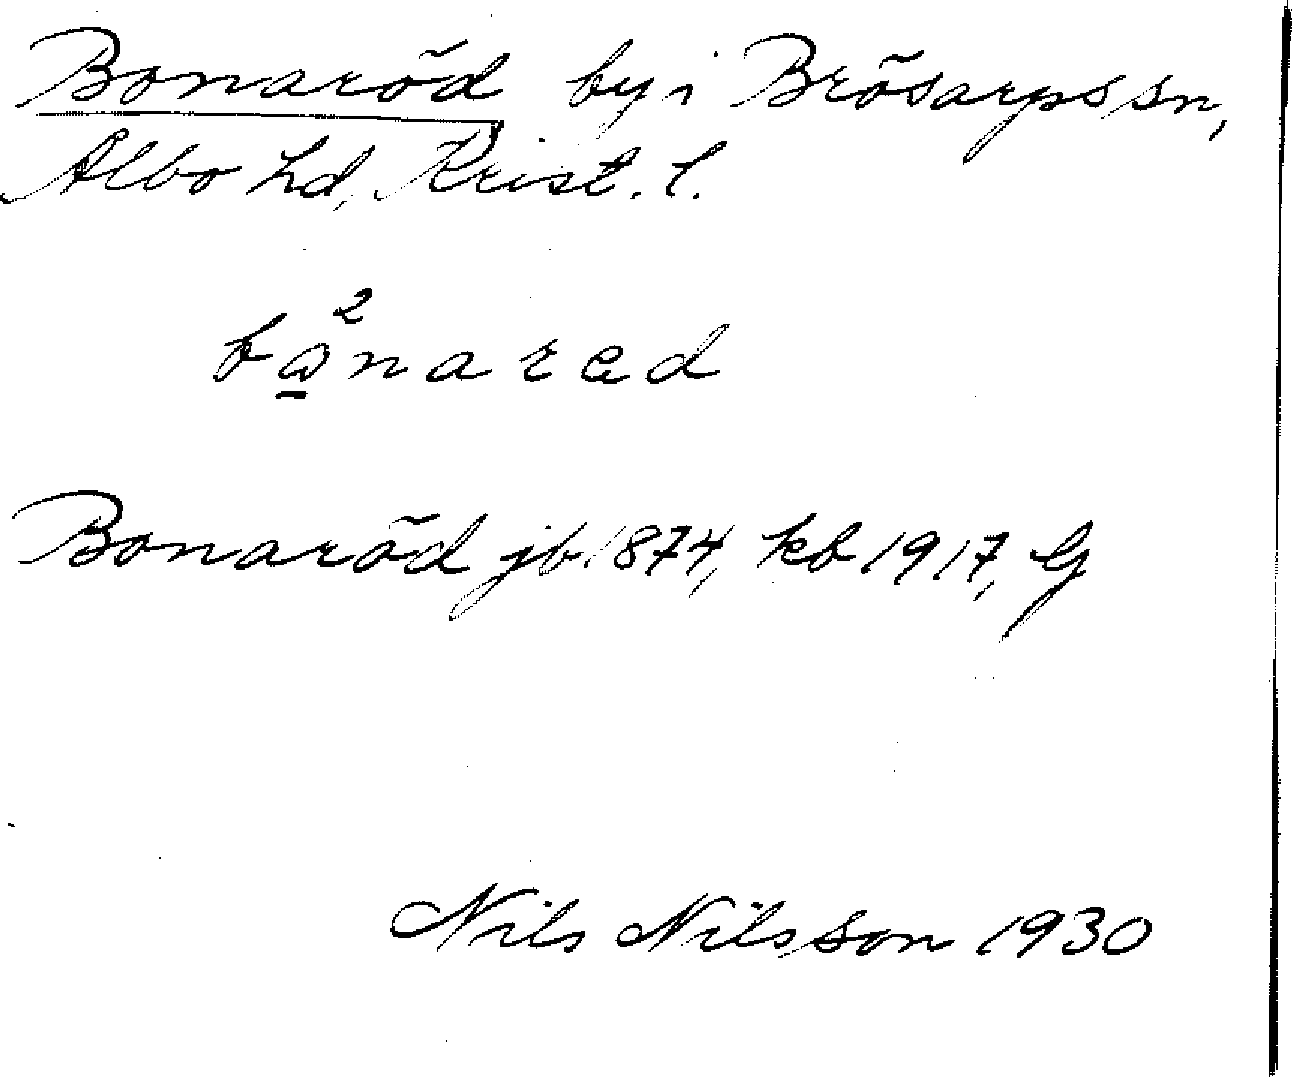 Bonaröd by i Brösarps sn,
Albo hd, Krist. l.
Bonaröd jb 1874, kb 1917, G
Nils Nilsson 1930